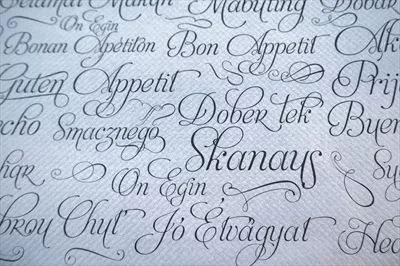 Selamat Makan Mabuting Dobar
On Egin
Bonan Apetiton Bon Appetit
Guten Appetit Prij
Dober tek
echo Smacznego Buen
Skanaus
On Egin
Jó Étvágyat